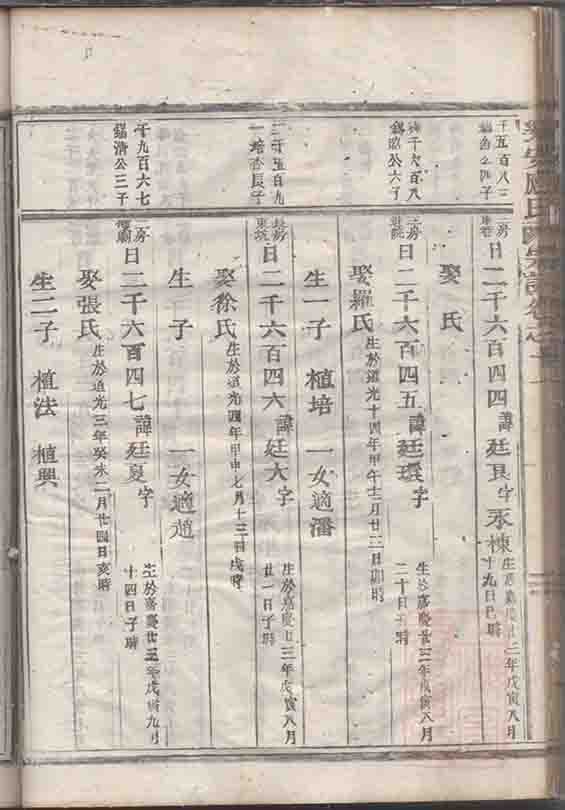 二房
日二千六百四四 諱廷良 字永棟
十九日巳時
娶 氏
日二千六百四五 諱廷 字
生於嘉慶廿三年戊寅八月
二十日子時
娶羅氏
生於道光十四年甲午十二月廿二日卯時
生一子 植培 一女適潘
二千五百九
一培 長子
長房
日二千六百四六 諱廷大 字
生於嘉慶廿三年戊寅八月
廿一日子時
娶徐氏
生於道光四年甲申七月十三日戌時
生 子 一女適趙
千九百六七
錫清公三子
二房
日二千六百四七 諱廷夏 字
生於嘉慶廿三年戊寅九月
十四日子時
娶張氏
生於道光三年癸未二月廿四日亥時
生二子 植法 植興